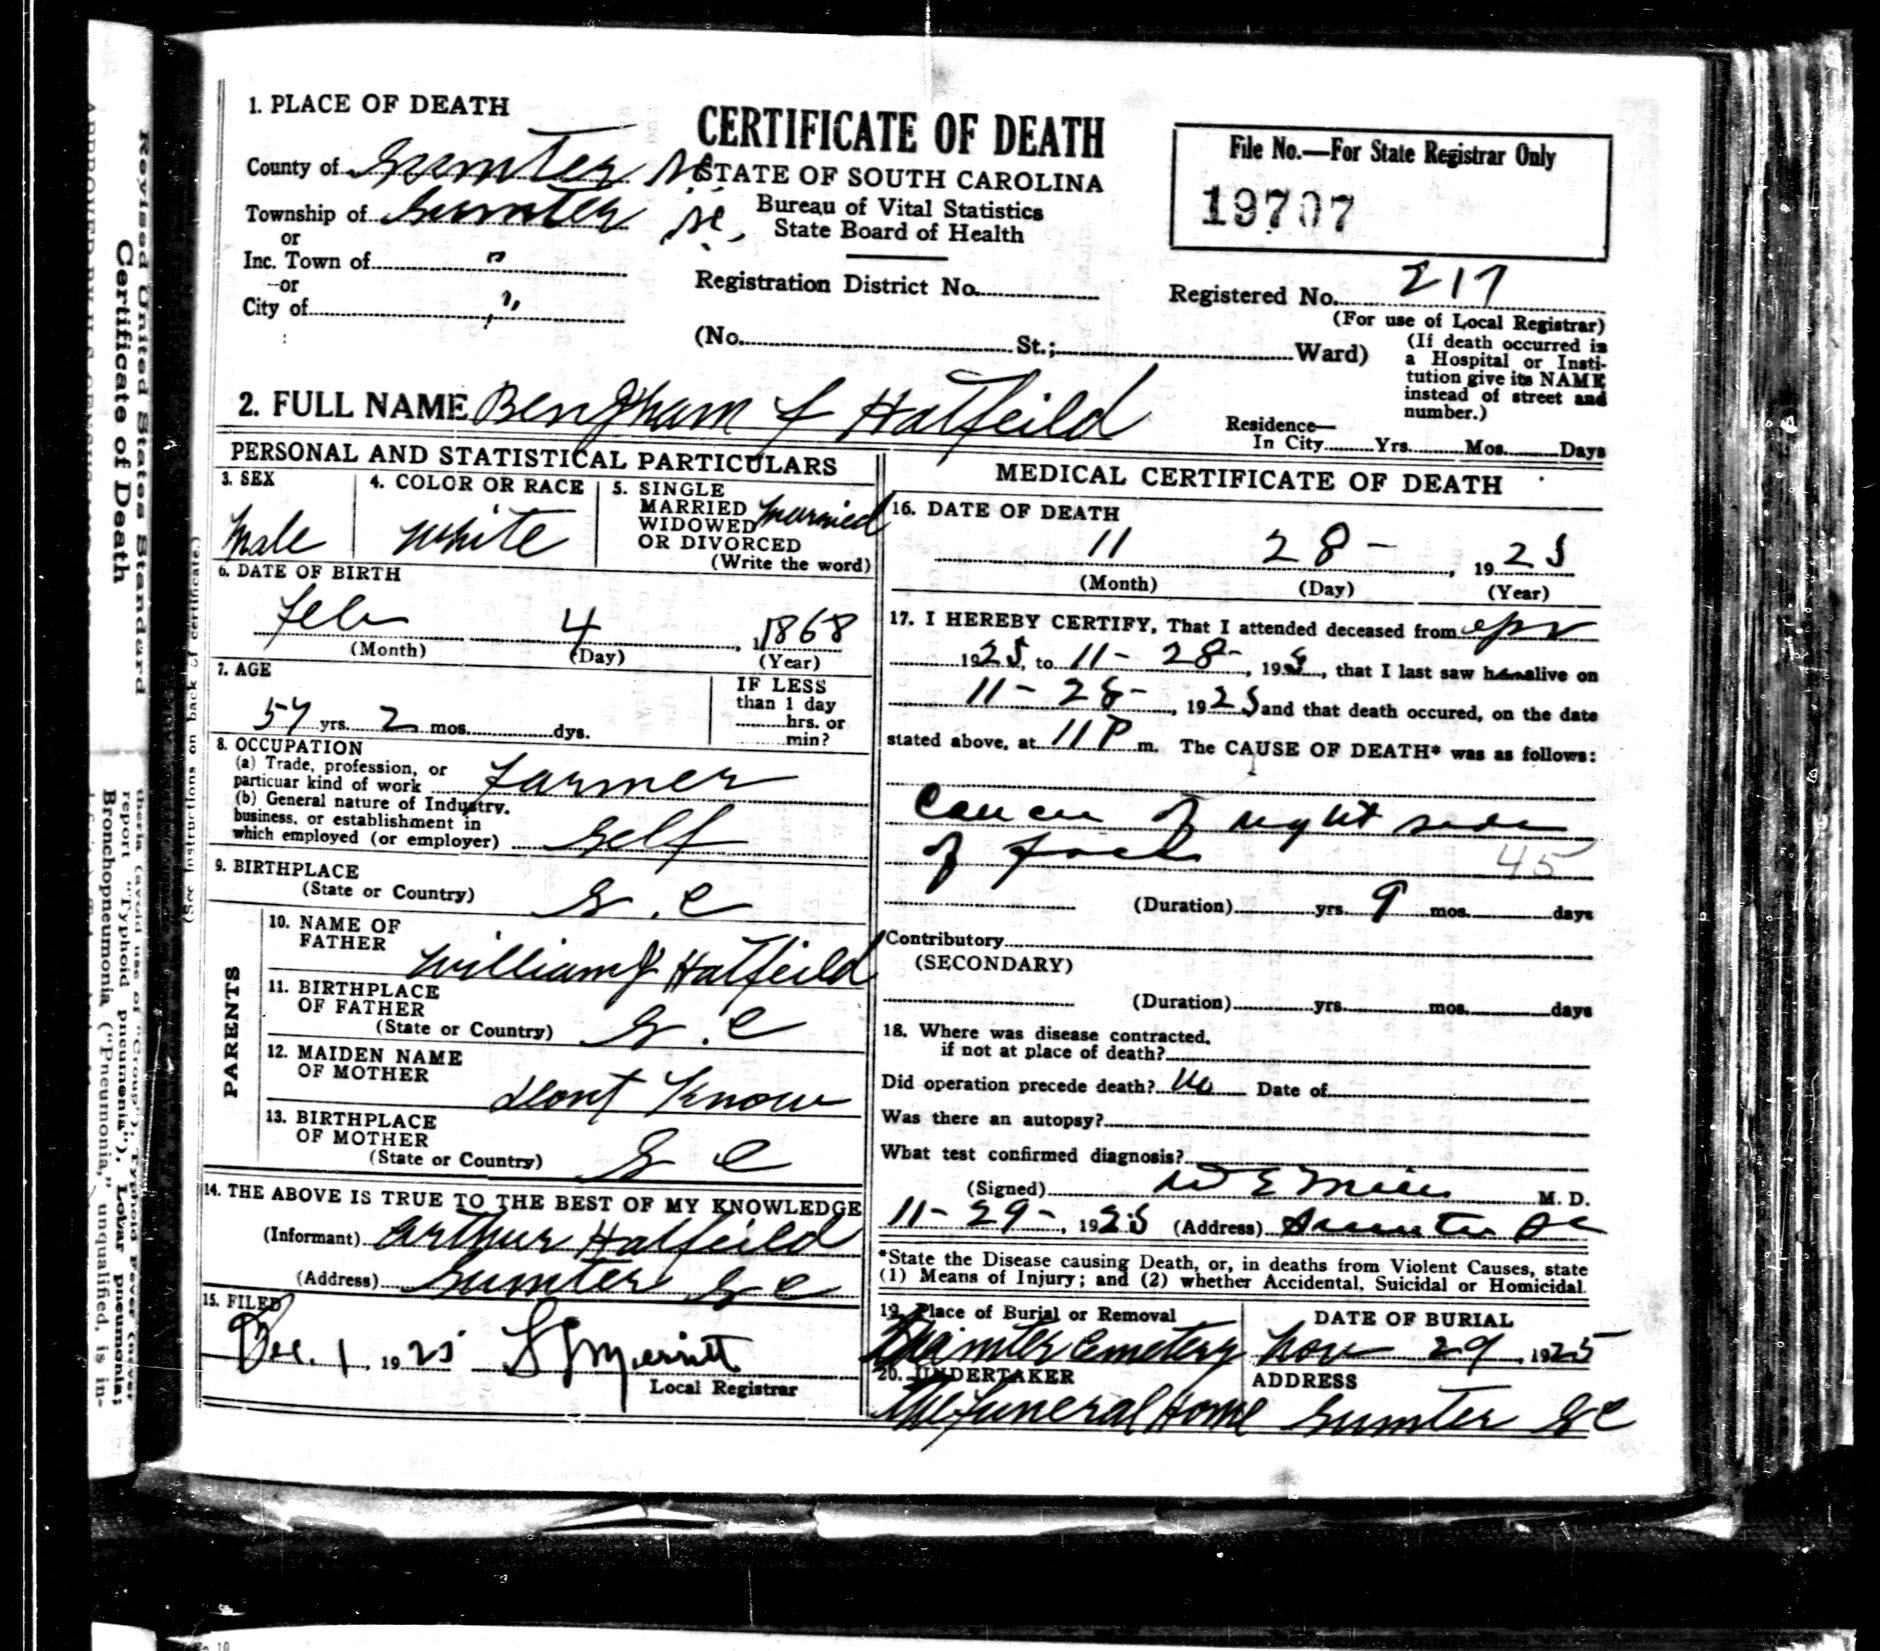 1. PLACE OF DEATH
County of Sumter SC
Township of Sumter SC,
or
Inc. Town of "
or
City of "
CERTIFICATE OF DEATH
STATE OF SOUTH CAROLINA
Bureau of Vital Statistics
State Board of Health
Registration District No.
(No. St.; Ward)
File No.—For State Registrar Only
19707
Registered No. 217
(For use of Local Registrar)
(If death occurred in
a Hospital or Insti-
tution give its NAME
instead of street and
number.)
2. FULL NAME Hatfeild
Residence—
In City Yrs. Mos. Days
PERSONAL AND STATISTICAL PARTICULARS
3. SEX
Male
4. COLOR OR RACE
White
5. SINGLE
MARRIED
WIDOWED
OR DIVORCED
(Write the word)
Married
6. DATE OF BIRTH
Feb 4, 1868
(Month) (Day) (Year)
7. AGE
57 yrs. 2 mos. dys.
IF LESS
than 1 day
hrs. or
min?
8. OCCUPATION
(a) Trade, profession, or
particuar kind of work Farmer
(b) General nature of Industry.
business, or establishment in
which employed (or employer) Self
9. BIRTHPLACE
(State or Country) S.C
PARENTS
10. NAME OF
FATHER William J Hatfeild
11. BIRTHPLACE
OF FATHER
(State or Country) S.C
12. MAIDEN NAME
OF MOTHER dont Know
13. BIRTHPLACE
OF MOTHER
(State or Country) S C
14. THE ABOVE IS TRUE TO THE BEST OF MY KNOWLEDGE
(Informant) Arthur Hatfeild
(Address) Sumter S C
15. FILED
Dec. 1, 1925 Merritt
Local Registrar
MEDICAL CERTIFICATE OF DEATH
16. DATE OF DEATH
11 28-, 1925
(Month) (Day) (Year)
17. I HEREBY CERTIFY, That I attended deceased from
1925, to 11-28-, 195, that I last saw him alive on
11-28-, 1925 and that death occured, on the date
stated above, at 11 P m. The CAUSE OF DEATH* was as follows:
Cancer of right side
of face 45
(Duration) yrs. 9 mos. days
Contributory
(SECONDARY)
(Duration) yrs. mos. days
18. Where was disease contracted.
if not at place of death?
Did operation precede death? No Date of
Was there an autopsy?
What test confirmed diagnosis?
(Signed) W E Mills M. D.
11-29-, 1925 (Address) Sumter SC
*State the Disease causing Death, or, in deaths from Violent Causes, state
(1) Means of Injury; and (2) whether Accidental, Suicidal or Homicidal.
19. Place of Burial or Removal
Cemetery
DATE OF BURIAL
Nov 29, 1925
20. UNDERTAKER
The Funeral Home
ADDRESS
Sumter S C
(See instructions on back of certificate.)
Revised United States Standard
Certificate of Death
report "Typhoid pneumonia"). Lobar pneumonia;
Bronchopneumonia ("Pneumonia," unqualified, is in-